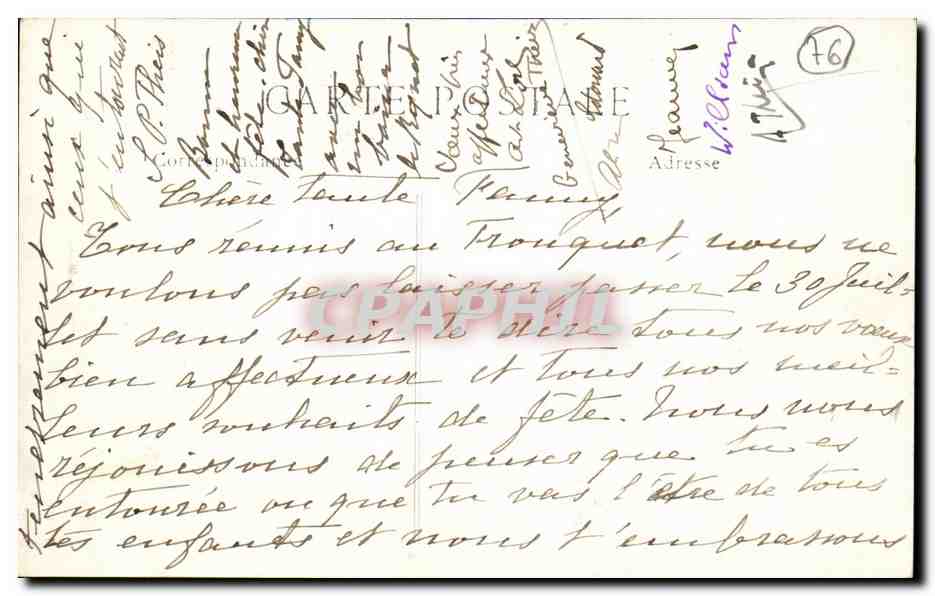 CARTE POSTALE
Correspondance
Adresse
76
Chère tante Fanny,
Tous réunis au Tronquet, nous ne
voulons pas laisser passer le 30 Juil-
let sans venir te dire tous nos vœux
bien affectueux et tous nos meil-
leurs souhaits de fête. Nous nous
réjouissons de penser que tu es
entourée ou que tu vas l'être de tous
tes enfants et nous t'embrassons
tendrement ainsi que
ceux qui
t'entourent
Bonne
et heureuse
fête chère
tante Fanny
Vœux très
affectueux
Geneviève
Jeanne
William
CPAPHIL